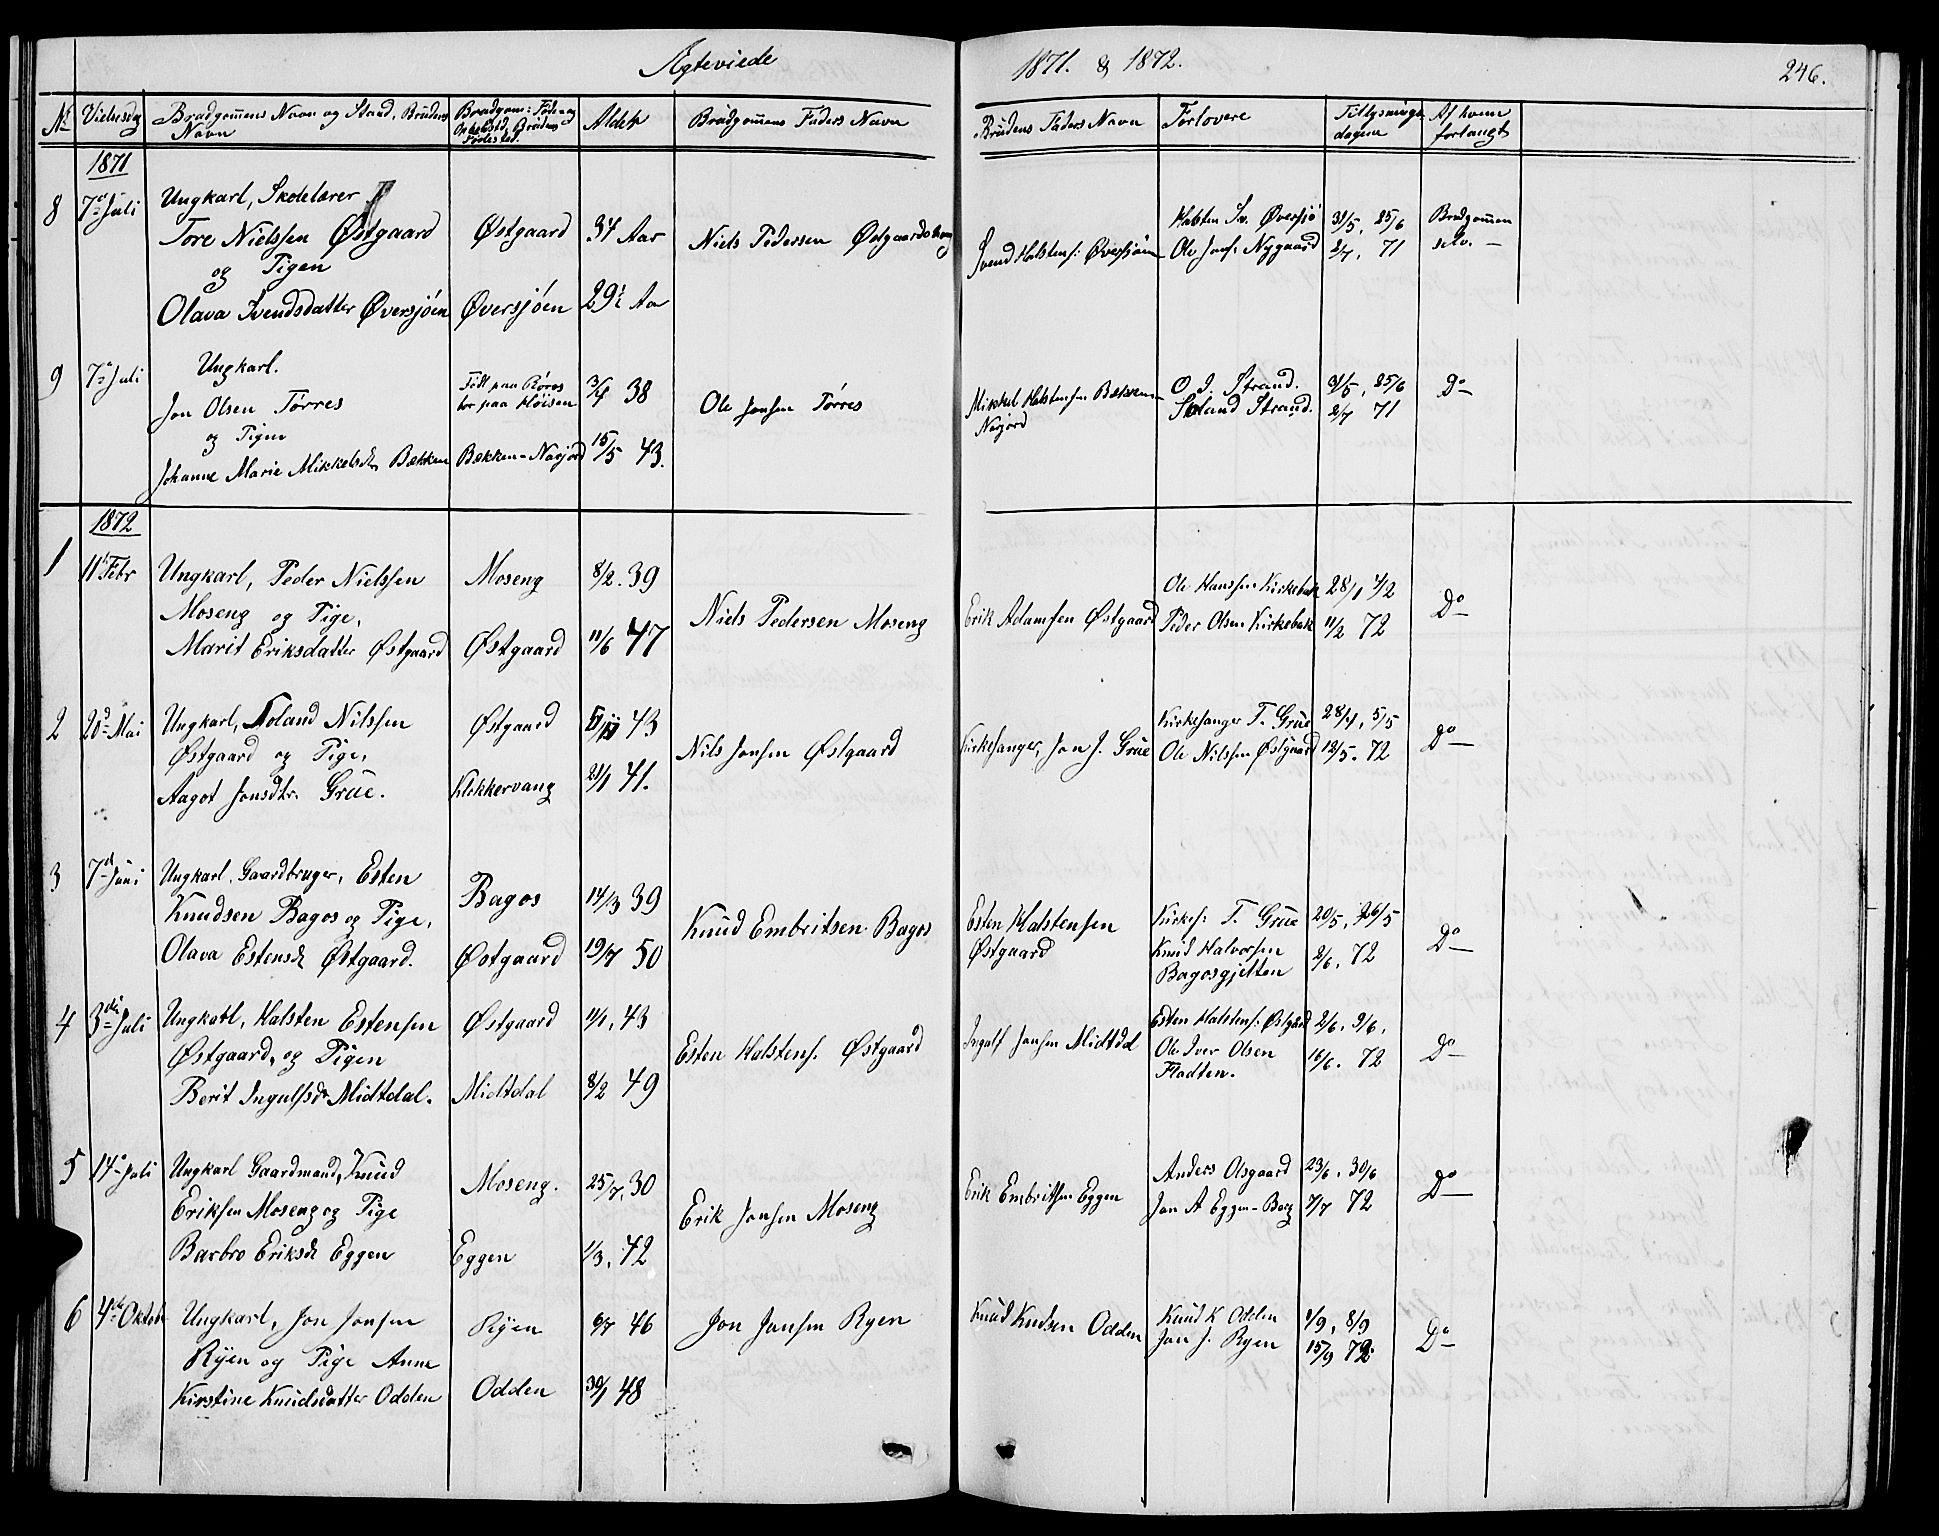 Ægteviede
1871. & 1872.
246.
No Vielsesdag Brudgommens Navn og Stand, Brudens Navn
Brudgom: Føde- og Brudens Fødested.
Alder
Brudgommens Faders Navn
Brudens Faders Navn
Forlovere
Tillysnings dagene
Af hvem forlangt
1871
8 7de Juli
Ungkarl, Skolelærer
Tore Nielssen Østgaard
og Pigen
Olava Svendsdatter Øversjøen
Østgaard
Øversjøen
34 Aar
29½ Aar
Niels Pedersen
Svend Halstens: Øversjøen
Halsten Sv. Øversjø
Ole Jons: Nygaard
31/5, 25/6
2/7, 71
Brudgommen
selv. —
9 7de Juli
Ungkarl.
Jon Olsen Tørres
og Pigen
Johanne Marie Mikkelsdtr Bækken
Født paa Røros
bor paa Høisen
Bækken-Narjord
3/4 38
15/5 43.
Ole Jonsen Tørres
Mikkel Halstensen Bækken
Narjord
O. J. Strand.
Strand.
31/5, 25/6
2/7 71
Do
1872
1 11te Febr
Ungkarl, Peder Nielssen
Moseng og Pige,
Marit Eriksdatter Østgaard
Moseng
Østgaard
8/2. 39
11/6 47
Niels Pedersen Moseng
Erik Adamsen Østgaard
Ole Hanssen Kirkebak
Peder Olsen Kirkebak
28/1 4/2
11/2 72
Do
2 20de Mai
Ungkarl, Roland Nilssen
Østgaard og Pige,
Aagot Jonsdtr. Grue.
Østgaard
Klokkervang
43
21/1 41.
Nils Jonsen Østgaard
Kirkesanger, Jon J. Grue
Kirkesanger T. Grue
Ole Nilssen Østgaard
28/4, 5/5
12/5. 72
Do
3 7de Juni
Ungkarl, Gaardbruger, Esten
Knudsen Bagos og Pige,
Olava Estensd Østgaard.
Bagos
Østgaard
14/3 39
19/7 50
Knud Embritsen Bagos
Esten Halstensen
Østgaard
Kirkes: T. Grue
Knud Halvorsen
Bagosgjelten
20/5, 26/5
2/6, 72
Do
4 3die Juli
Ungkarl, Halsten Estensen
Østgaard, og Pigen
Berit Ingulfsdr Midtdal.
Østgaard
Midtdal
11/1, 43
8/2 49
Esten Halstens. Østgaard
Ingulf Jonsen Midtdal
Esten Halstens: Østgård
Ole Iver Olsen
Fladten.
2/6, 9/6,
16/6. 72
Do
5 14de Juli
Ungkarl Gaardmand, Knud
Eriksen Moseng og Pige
Barbro Eriksd Eggen
Moseng.
Eggen
25/7, 30
1/3, 42
Erik Jonsen Moseng
Erik Embritsen Eggen
Anders Olsgaard
Jon A Eggen-Borg
23/6, 30/6
7/7 72
Do
6 4de Oktob
Ungkarl, Jon Jonsen
Ryen og Pige Anne
Kirstine Knudsdatter Odden
Ryen
Odden
6/7 46
30/1 48
Jon Jonsen Ryen
Knud Knudsen Odden
Knud K Odden
Jon J. Ryen
1/9, 8/9
15/9 72
Do